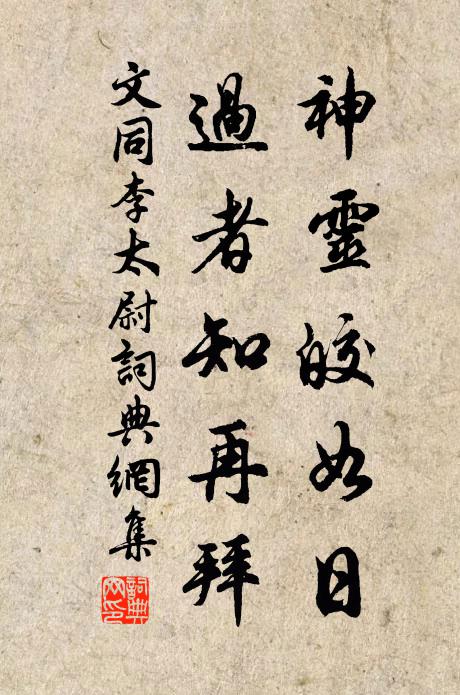 神靈皎如日
過者知再拜
文同李太尉詞典網集
詞典網印